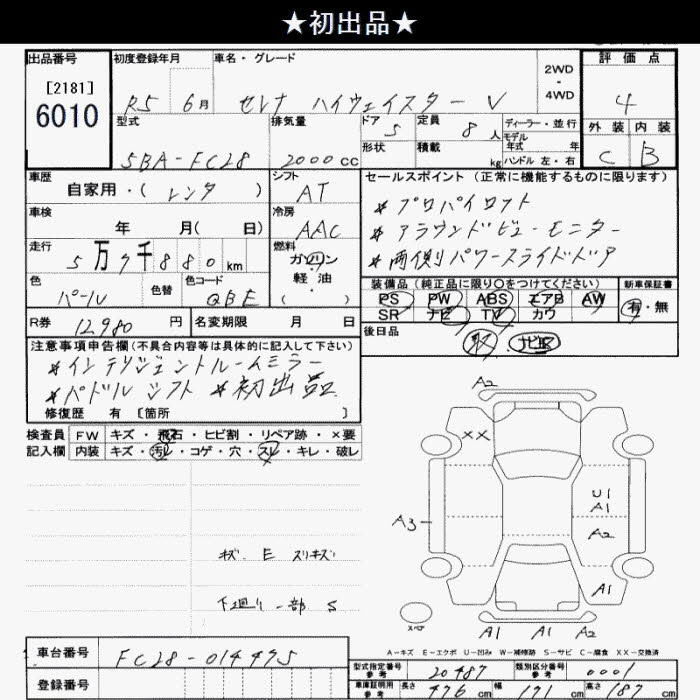 ★初出品★
出品番号
[2181]
6010
初度登録年月
R5 6月
車名・グレード
セレナ ハイウェイスター V
2WD
・
4WD
評価点
4
外装 内装
C B
型式
5BA-FC28
排気量
2000cc
ドア 5
形状
定員 8人
積載 kg
ディーラー・並行
モデル
年式 年
ハンドル 左・右
車歴
自家用・( レンタ )
シフト
AT
車検
年 月( 日)
冷房
AAC
走行
5万7千880km
燃料
ガソリン
軽・油
( )
色
パール
色替
色コード
QBE
R券 12980 円
名変期限 月 日
セールスポイント (正常に機能するものに限ります)
*プロパイロット
*アラウンドビューモニター
*両側パワースライドドア
装備品(純正品に限り○をつけてください)
PS PW ABS エアB AW
SR ナビ TV カワ
新車保証書
有・無
後日品
取 ナビ取
注意事項申告欄(不具合内容等は具体的に記入して下さい)
*インテリジェントルームミラー
*パドルシフト *初出品
修復歴 有 [箇所 ]
検査員
記入欄
FW キズ・飛石・ヒビ割・リペア跡・×要
内装 キズ・汚レ・コゲ・穴・スレ・キレ・破レ
キズ、E スリキズ
下廻り一部 S
A2
××
U1
A1
A2
A3
A1
A1 A1 A2
A-キズ E-エクボ U-凹み W-補修跡 S-サビ C-腐食 XX-交換済
車台番号
FC28-014495
登録番号
型式指定番号
参考
20487
類別区分番号
参考
0001
車庫証明用
参考
長さ 476cm 幅 171cm 高さ 187cm